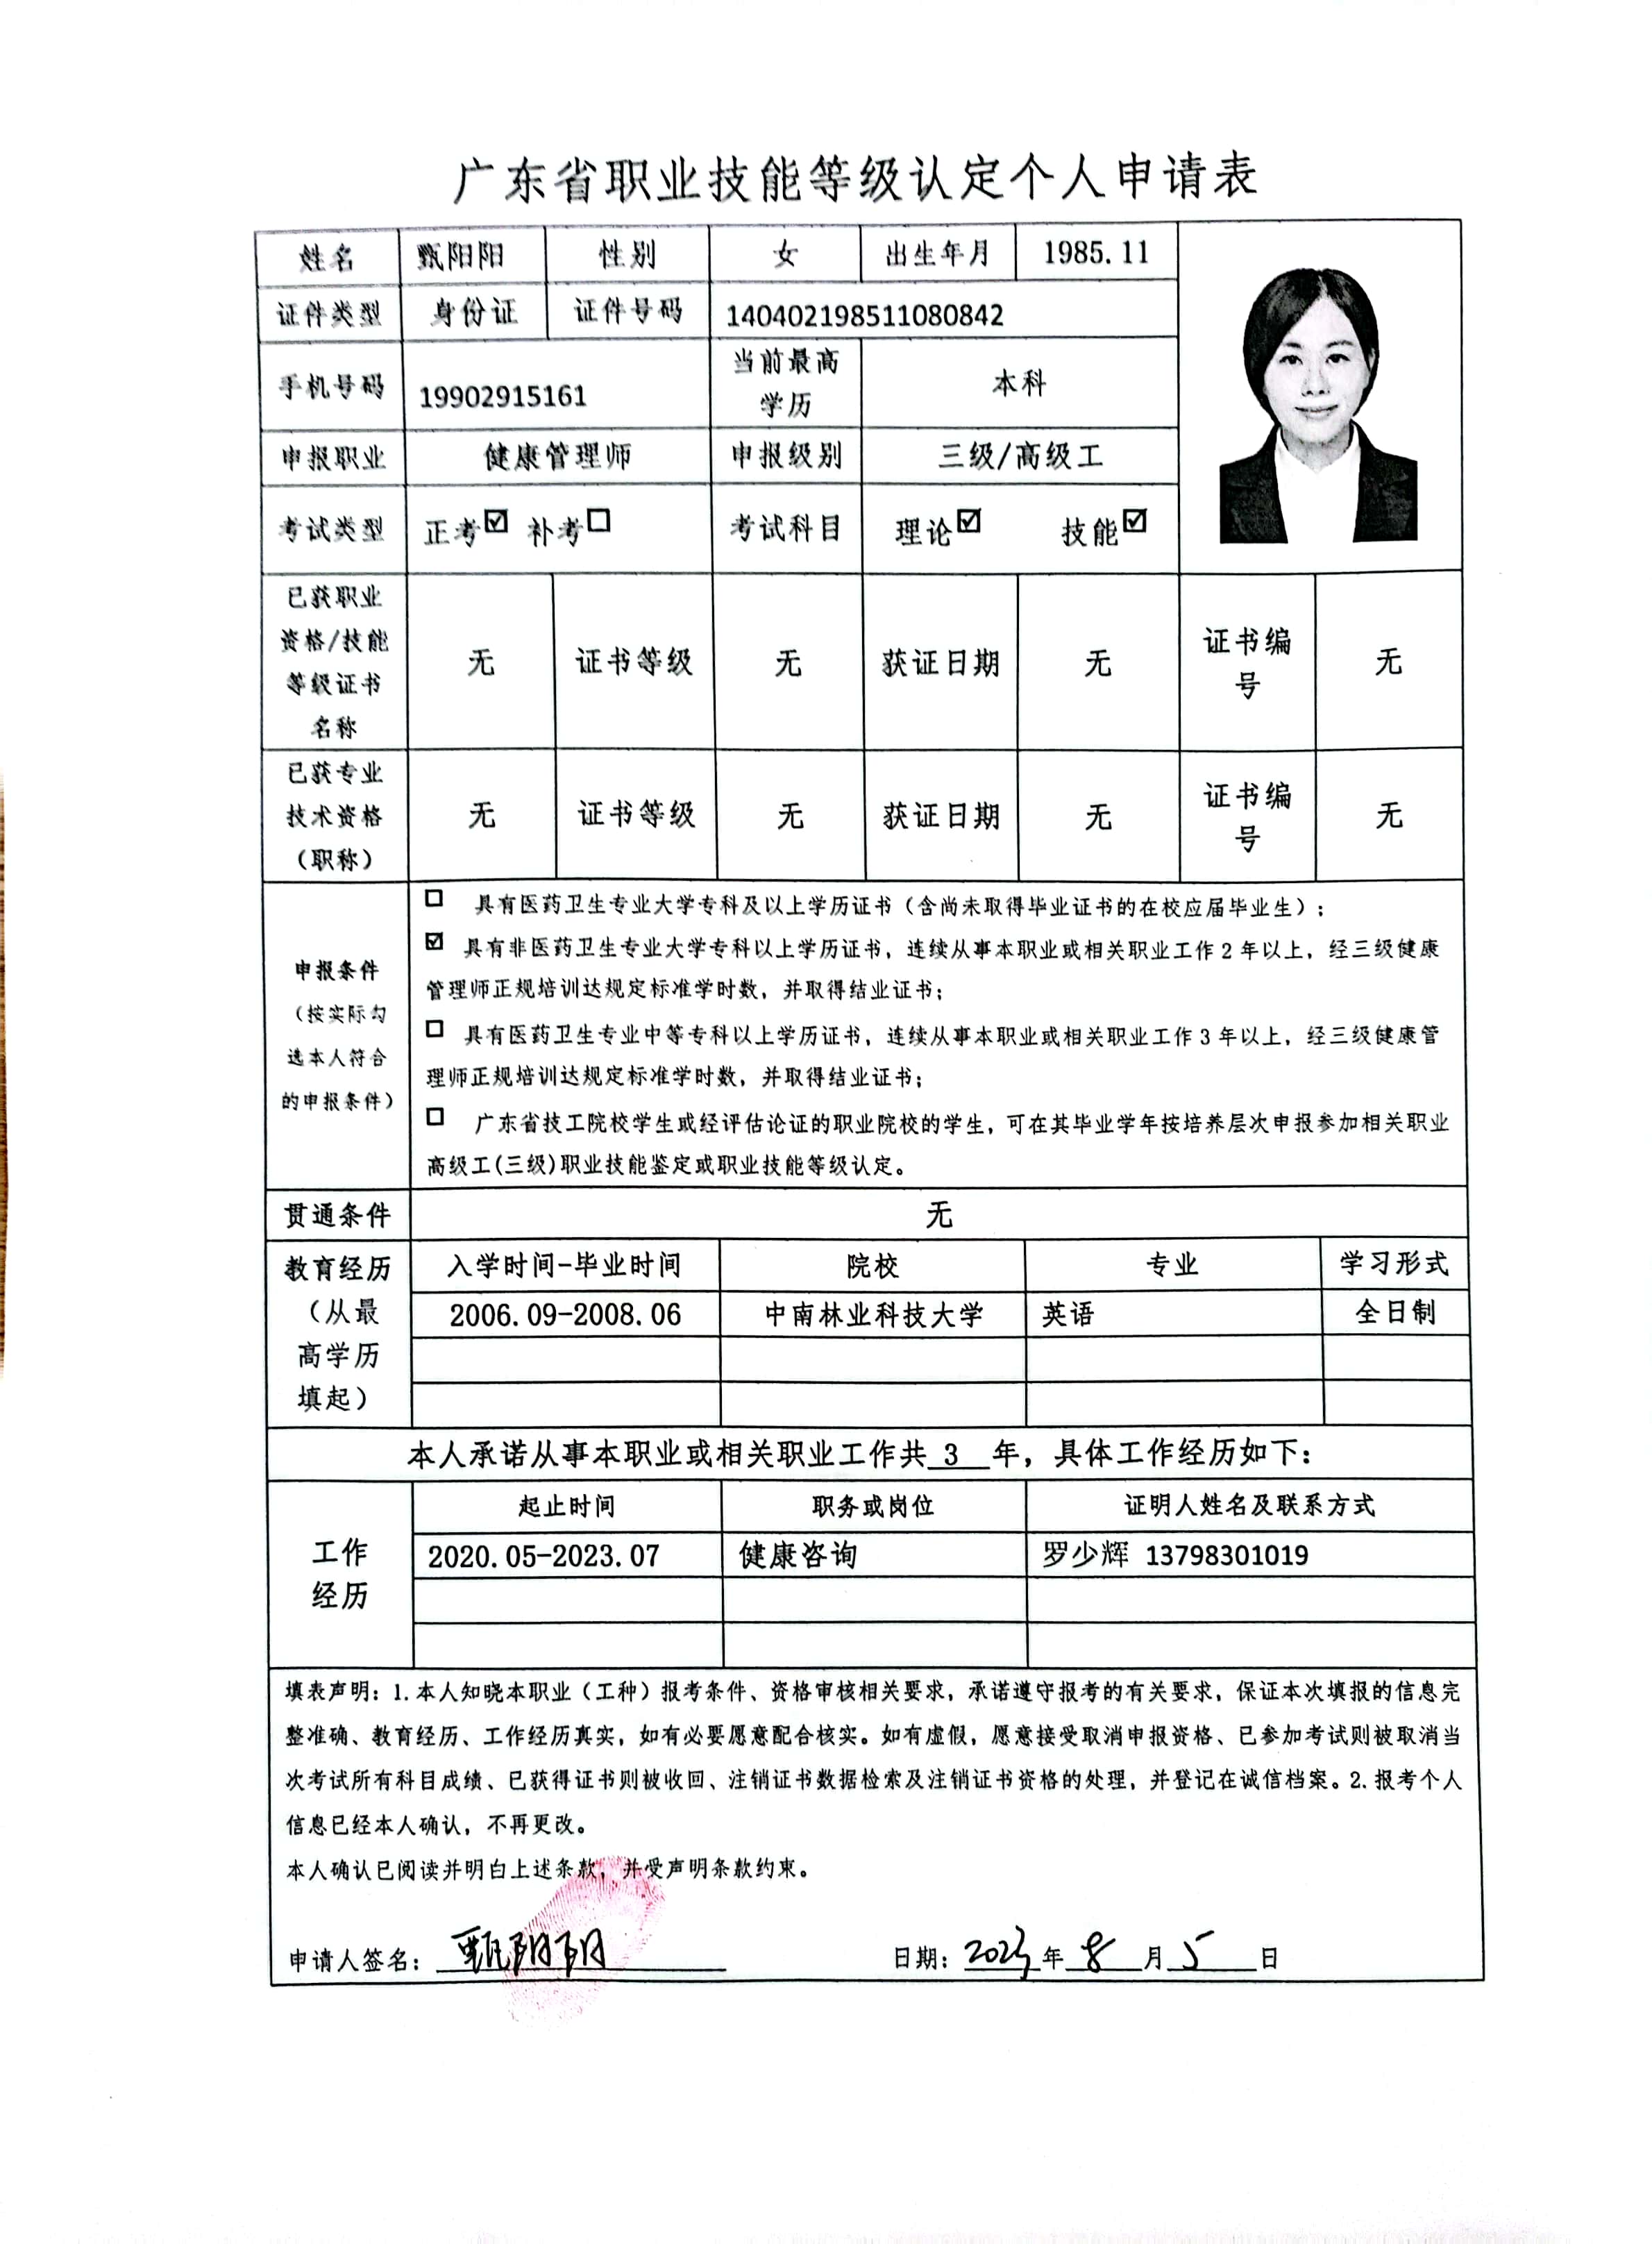 广东省职业技能等级认定个人申请表
姓名 甄阳阳 性别 女 出生年月 1985.11
证件类型 身份证 证件号码 140402198511080842
手机号码 19902915161 当前最高学历 本科
申报职业 健康管理师 申报级别 三级/高级工
考试类型 正考☑ 补考☐ 考试科目 理论☑ 技能☑
已获职业资格/技能等级证书名称 无 证书等级 无 获证日期 无 证书编号 无
已获专业技术资格（职称） 无 证书等级 无 获证日期 无 证书编号 无
申报条件（按实际勾选本人符合的申报条件）
☐ 具有医药卫生专业大学专科及以上学历证书（含尚未取得毕业证书的在校应届毕业生）；
☑ 具有非医药卫生专业大学专科以上学历证书，连续从事本职业或相关职业工作2年以上，经三级健康
管理师正规培训达规定标准学时数，并取得结业证书；
☐ 具有医药卫生专业中等专科以上学历证书，连续从事本职业或相关职业工作3年以上，经三级健康管
理师正规培训达规定标准学时数，并取得结业证书；
☐ 广东省技工院校学生或经评估论证的职业院校的学生，可在其毕业学年按培养层次申报参加相关职业
高级工(三级)职业技能鉴定或职业技能等级认定。
贯通条件 无
教育经历（从最高学历填起）
入学时间-毕业时间 院校 专业 学习形式
2006.09-2008.06 中南林业科技大学 英语 全日制
本人承诺从事本职业或相关职业工作共 3 年，具体工作经历如下：
工作经历
起止时间 职务或岗位 证明人姓名及联系方式
2020.05-2023.07 健康咨询 罗少辉 13798301019
填表声明：1.本人知晓本职业（工种）报考条件、资格审核相关要求，承诺遵守报考的有关要求，保证本次填报的信息完
整准确、教育经历、工作经历真实，如有必要愿意配合核实。如有虚假，愿意接受取消申报资格、已参加考试则被取消当
次考试所有科目成绩、已获得证书则被收回、注销证书数据检索及注销证书资格的处理，并登记在诚信档案。2.报考个人
信息已经本人确认，不再更改。
本人确认已阅读并明白上述条款，并受声明条款约束。
申请人签名：甄阳阳 日期：2023年8月5日